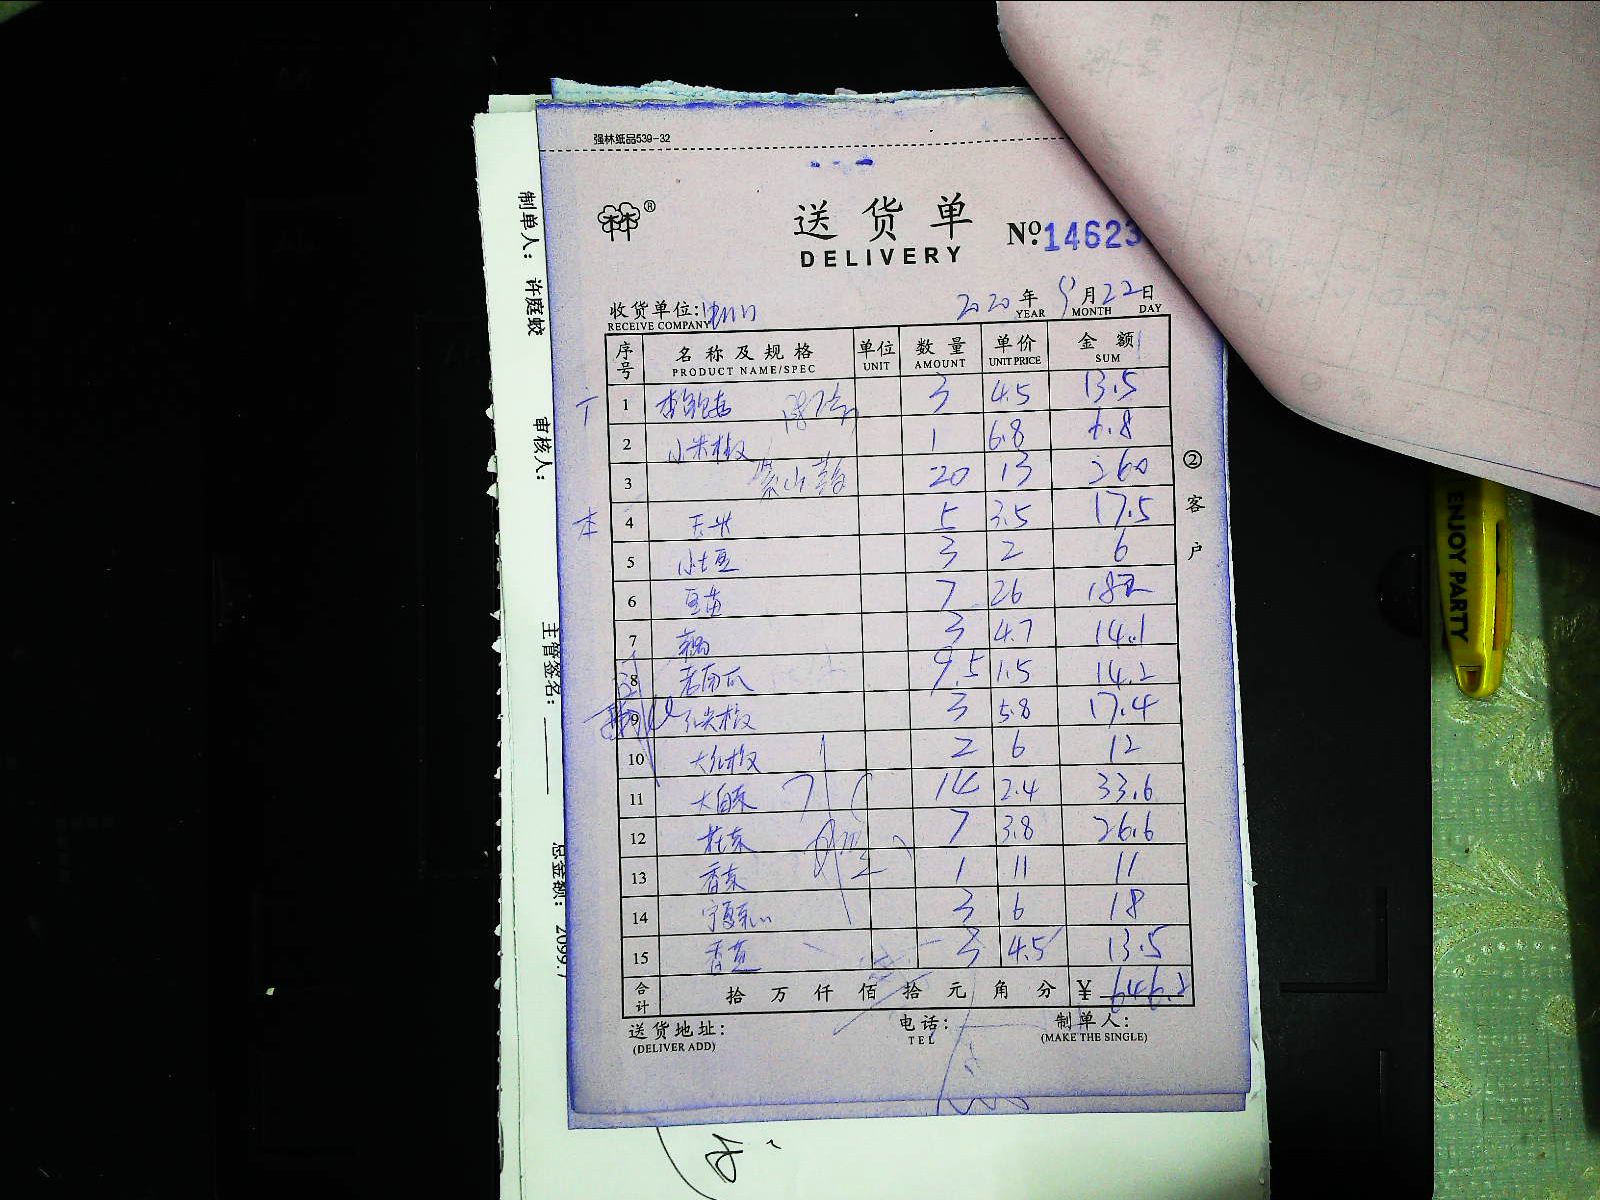 强林纸品539-32
送货单
DELIVERY
№ 14623
收货单位:
RECEIVE COMPANY
2020年 9月22日
YEAR MONTH DAY
序号 名称及规格 单位 数量 单价 金额
PRODUCT NAME/SPEC UNIT AMOUNT UNIT PRICE SUM
1 杏鲍菇 3 4.5 13.5
2 小米椒 1 6.8 6.8
3 紫山药 20 13 260
本 4 玉米 5 3.5 17.5
5 小土豆 3 2 6
6 豆苗 7 26 182
7 3 4.7 14.1
8 老南瓜 9.5 1.5 14.2
9 尖椒 3 5.8 17.4
10 大红椒 2 6 12
11 大白菜 14 2.4 33.6
12 3.8 7 26.6
13 香菜 1 11 11
14 宁夏菜心 3 6 18
15 3 4.5 13.5
合计 拾 万 仟 佰 拾 元 角 分 ¥ 646.2
送货地址:
(DELIVER ADD)
电话:
TEL
制单人:
(MAKE THE SINGLE)
② 客户
制单人: 许庭蛟
审核人:
主管签名:
总金额: 2099.7
ENJOY PARTY